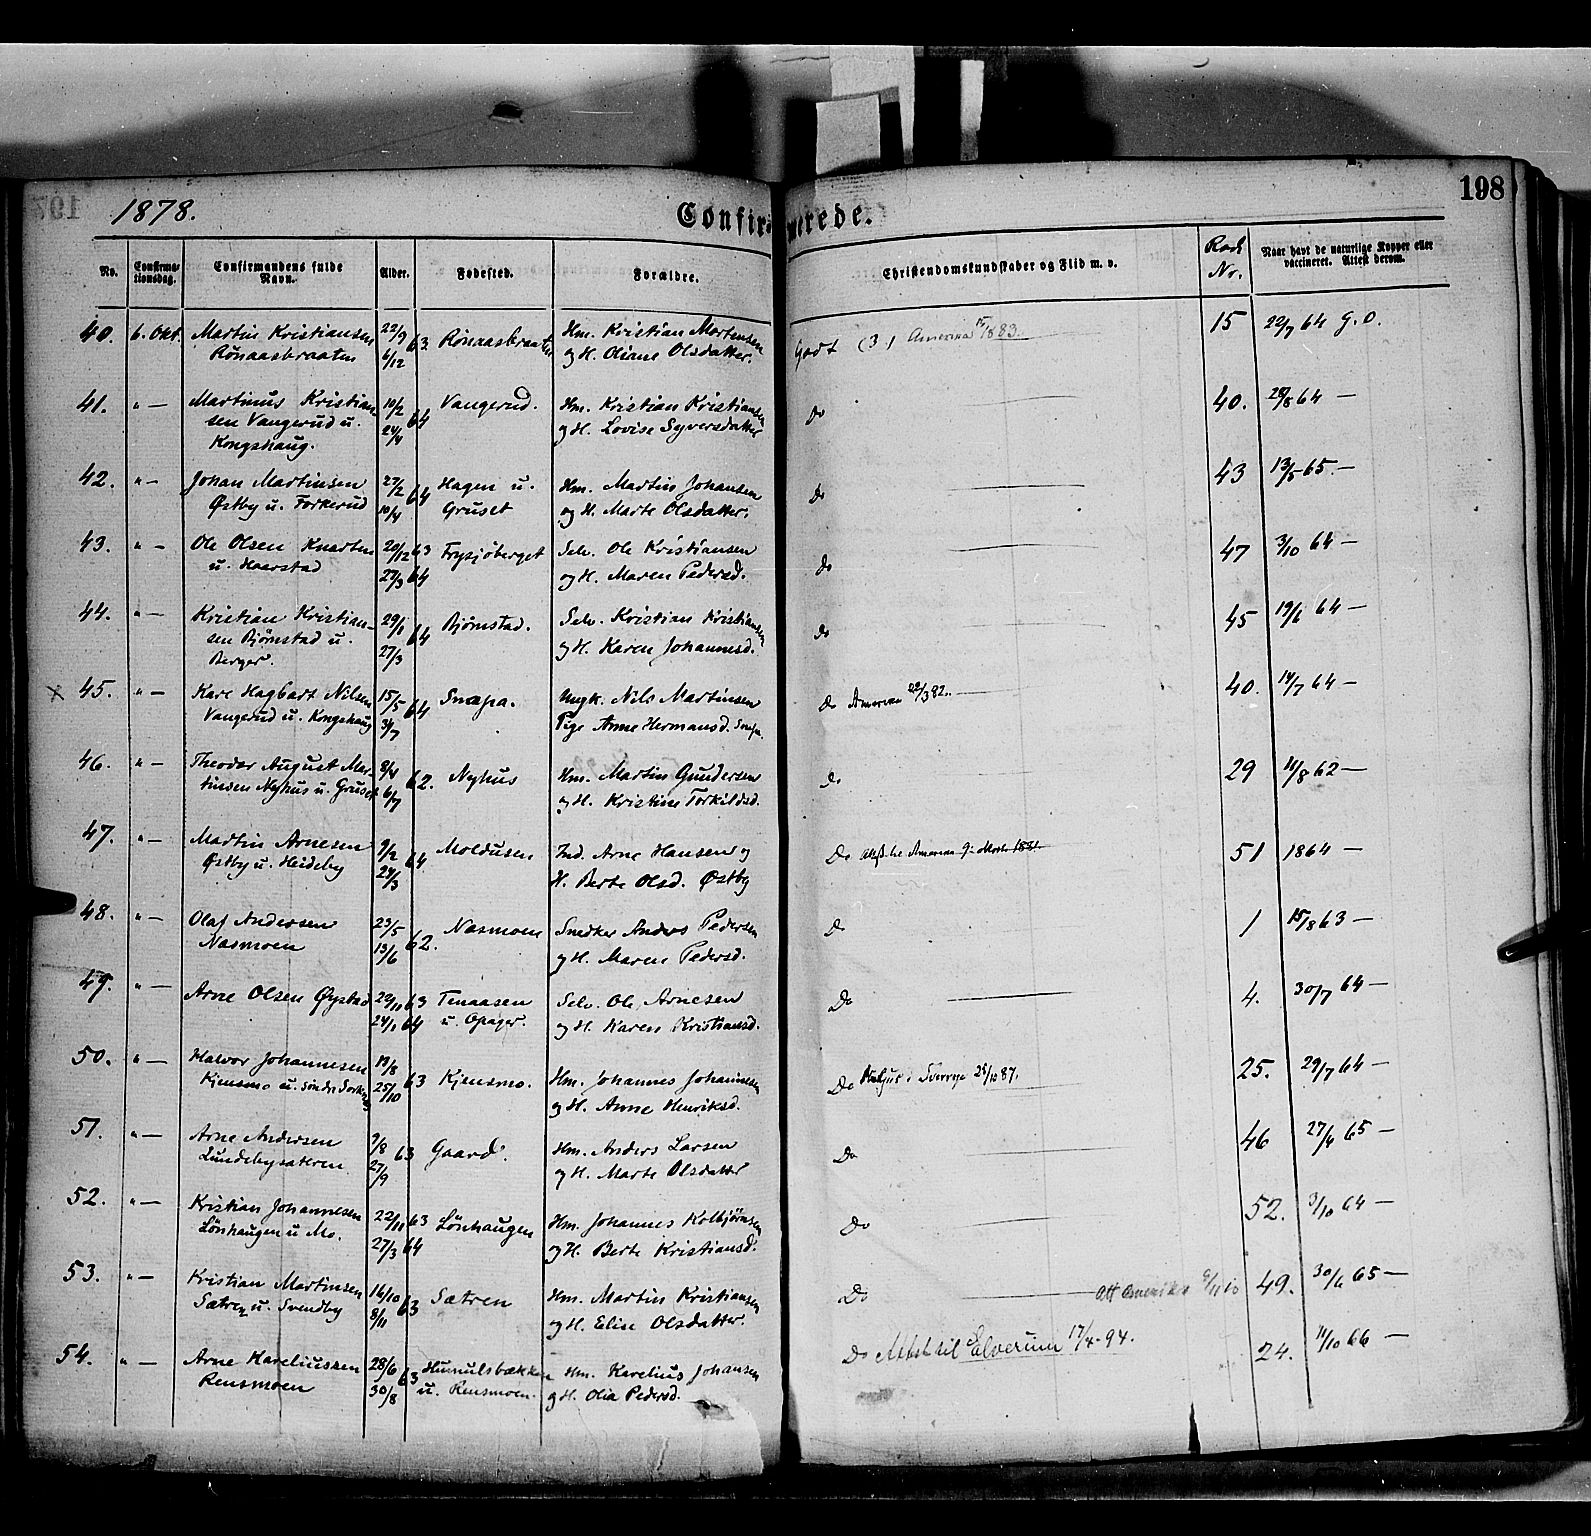 198
1878.
Confirmerede.
No. Confirmationsdag. Confirmandens fulde Navn. Alder. Fødested. Forældre. Christendomskundskaber og Flid m. v. Rode Nr. Naar havt de naturlige Kopper eller vaccineret. Attest derom.
40. 6. Okt. Martin Kristiansen 22/9 63 Rønaasbraaten Hm. Kristian Mortensen Godt (3) Amerika 1883. 15 22/7 64 G.O.
Rønaasbraaten 6/12 og H. Oliane Olsdatter.
41. " — Martinus Kristian- 10/2 64 Vangerud. Hm. Kristian Kristiansen Do 40. 28/8 64 —
sen Vangerud u. 24/4 og H. Lovise Syversdatter
Kongshaug.
42. " — Johan Martinsen 27/2 64 Hagen u. Hm. Martin Johansen Do 43 13/5 65. —
Østby u. Torkerud 10/4 Gruset og H. Marte Olsdatter.
43. " — Ole Olsen Knarten 20/12 63 Frysjøberget Selv. Ole Kristiansen Do 47 3/10 64 —
u. Haarstad 27/3 64 og H. Maren Pedersd.
44. " — Kristian Kristian- 29/1 64 Bjørnstad. Selv. Kristian Kristiansen Do 45 19/6 64 —
sen Bjørnstad u. 27/3 og H. Karen Johannesd.
Berger.
x 45. " — Karl Hagbart Nilsen 15/5 64 Snapa. Ungk. Nils Martinsen Do Amerika 22/3 82. 40. 14/7 64 —
Vangerud u. Kongshaug 31/7 Pige Anne Hermansd.
46. " — Theodor August Mar- 8/4 62. Nyhus Hm. Martin Gundersen Do 29 11/8 62 —
tinsen Nyhus u. Gruset 6/7 og H. Kristine Torkildsd.
47. " — Martin Arnesen 9/2 64 Moldusen Ind. Arne Hansen og Do Amerika 1881. 51 1864 —
Østby u. Heideby 24/3 H. Berte Olsd. Østby
48. " — Olaf Andersen 23/5 62. Nasmoen Snedker Anders Pedersen Do 1 15/8 63 —
Nasmoen 13/6 og H. Maren Pedersd.
49. " — Arne Olsen Øystad 22/10 63 Tenaasen Selv. Ole Arnesen Do 4. 30/7 64 —
24/1 64 u. Opager. og H. Karen Kristiansd.
50. " — Halvor Johannesen 13/8 63 Kjensmo. Hm. Johannes Johannesen Do Sverrige 87. 25. 29/7 64 —
Kjensmo u. 25/10 og H. Anne Henriksd.
51. " — Arne Andersen 9/8 63 Gaard. Hm. Anders Larsen Do 46 27/4 65 —
Lundebysætren 27/9 og H. Marte Olsdatter
52. " — Kristian Johannesen 22/11 63 Lønhaugen Hm. Johannes Kolbjørnsen Do 52. 3/10 64 —
Lønhaugen u Mo. 27/3 64 og H. Berte Kristiansd.
53. " — Kristian Martinsen 16/10 63 Sætren Hm. Martin Kristiansen Do Att Amerika 49. 30/6 65 —
Sætren u. Svendby 8/11 og H. Elise Olsdatter.
54. " — Arne Kareliussen 28/6 63 Humulsbækken Hm. Karelius Johansen Do Attest til Elverum 17/4 - 94. 24. 11/10 66 —
Rensmoen 30/8 u. Rensmoen. og H. Olia Pedersd.